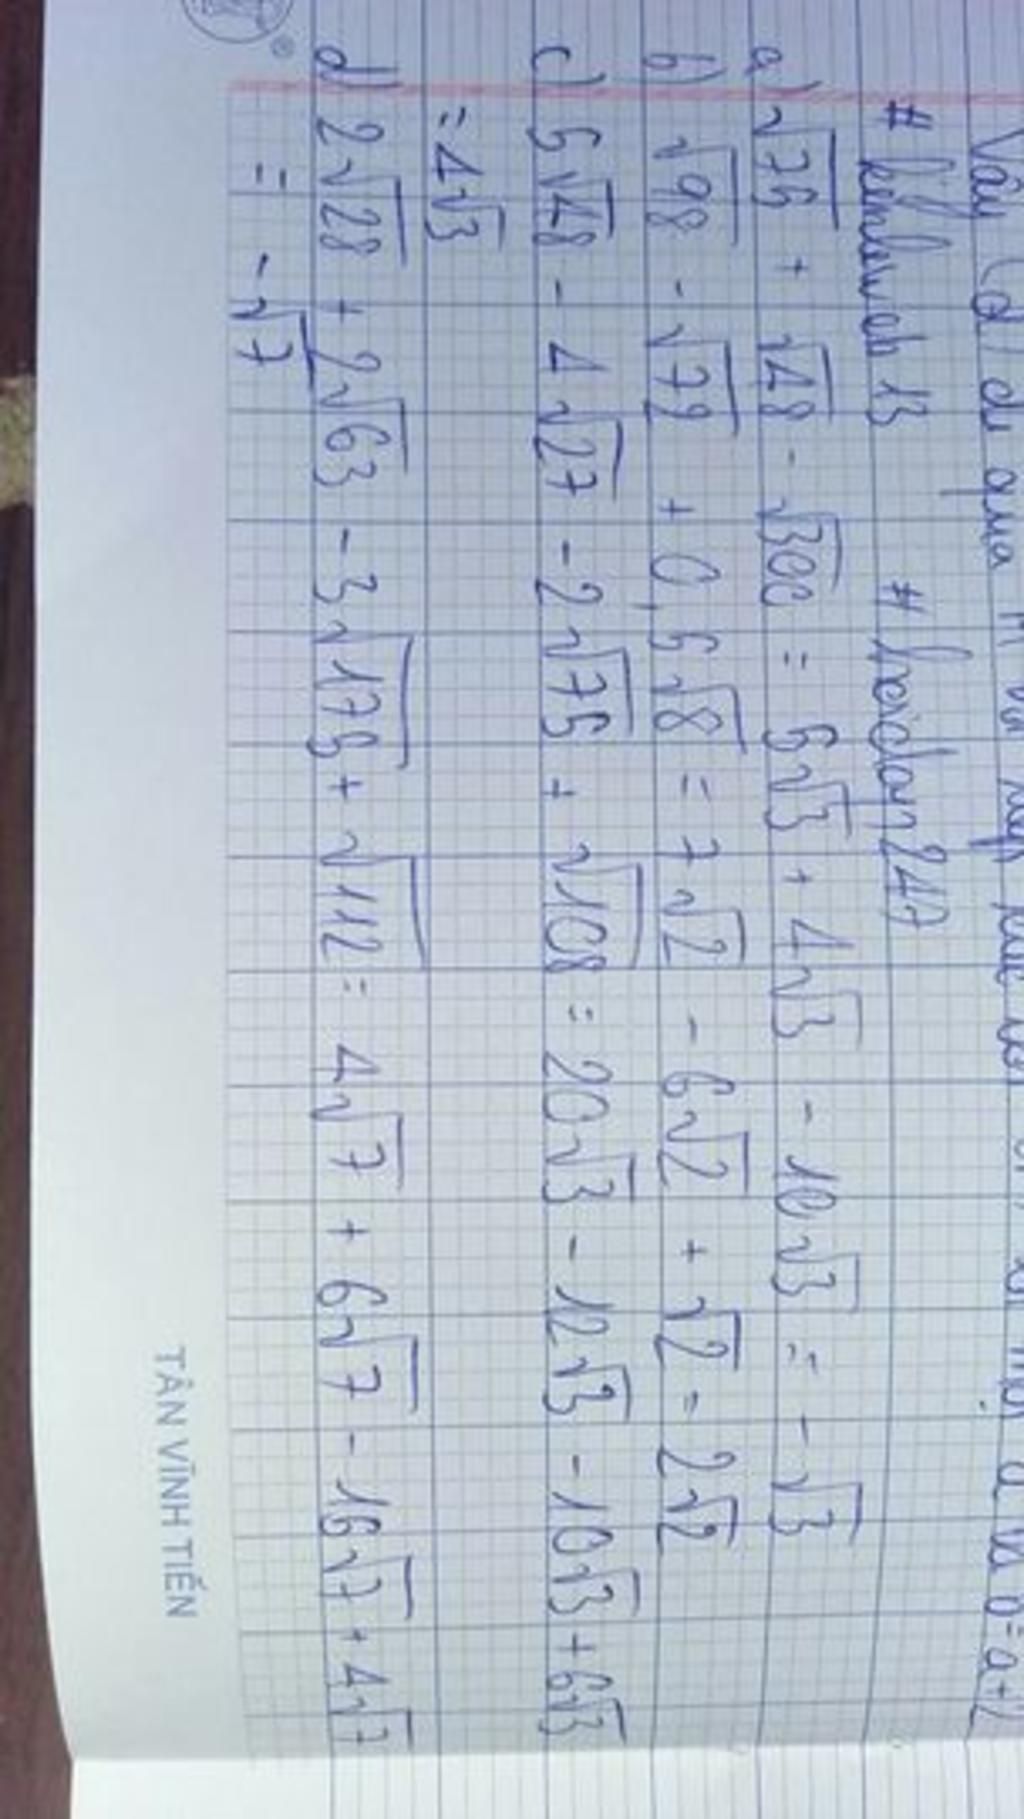 Vậy (d) đi qua M
# kenlaweb 13 # hoidap247
a) √75 + √48 - √300 = 5√3 + 4√3 - 10√3 = -√3
b) √98 - √72 + 0,5√8 = 7√2 - 6√2 + √2 = 2√2
c) 5√48 - 4√27 - 2√75 + √108 = 20√3 - 12√3 - 10√3 + 6√3
= 4√3
d) 2√28 + 2√63 - 3√175 + √112 = 4√7 + 6√7 - 15√7 + 4√7
= -√7
TÂN VĨNH TIẾN